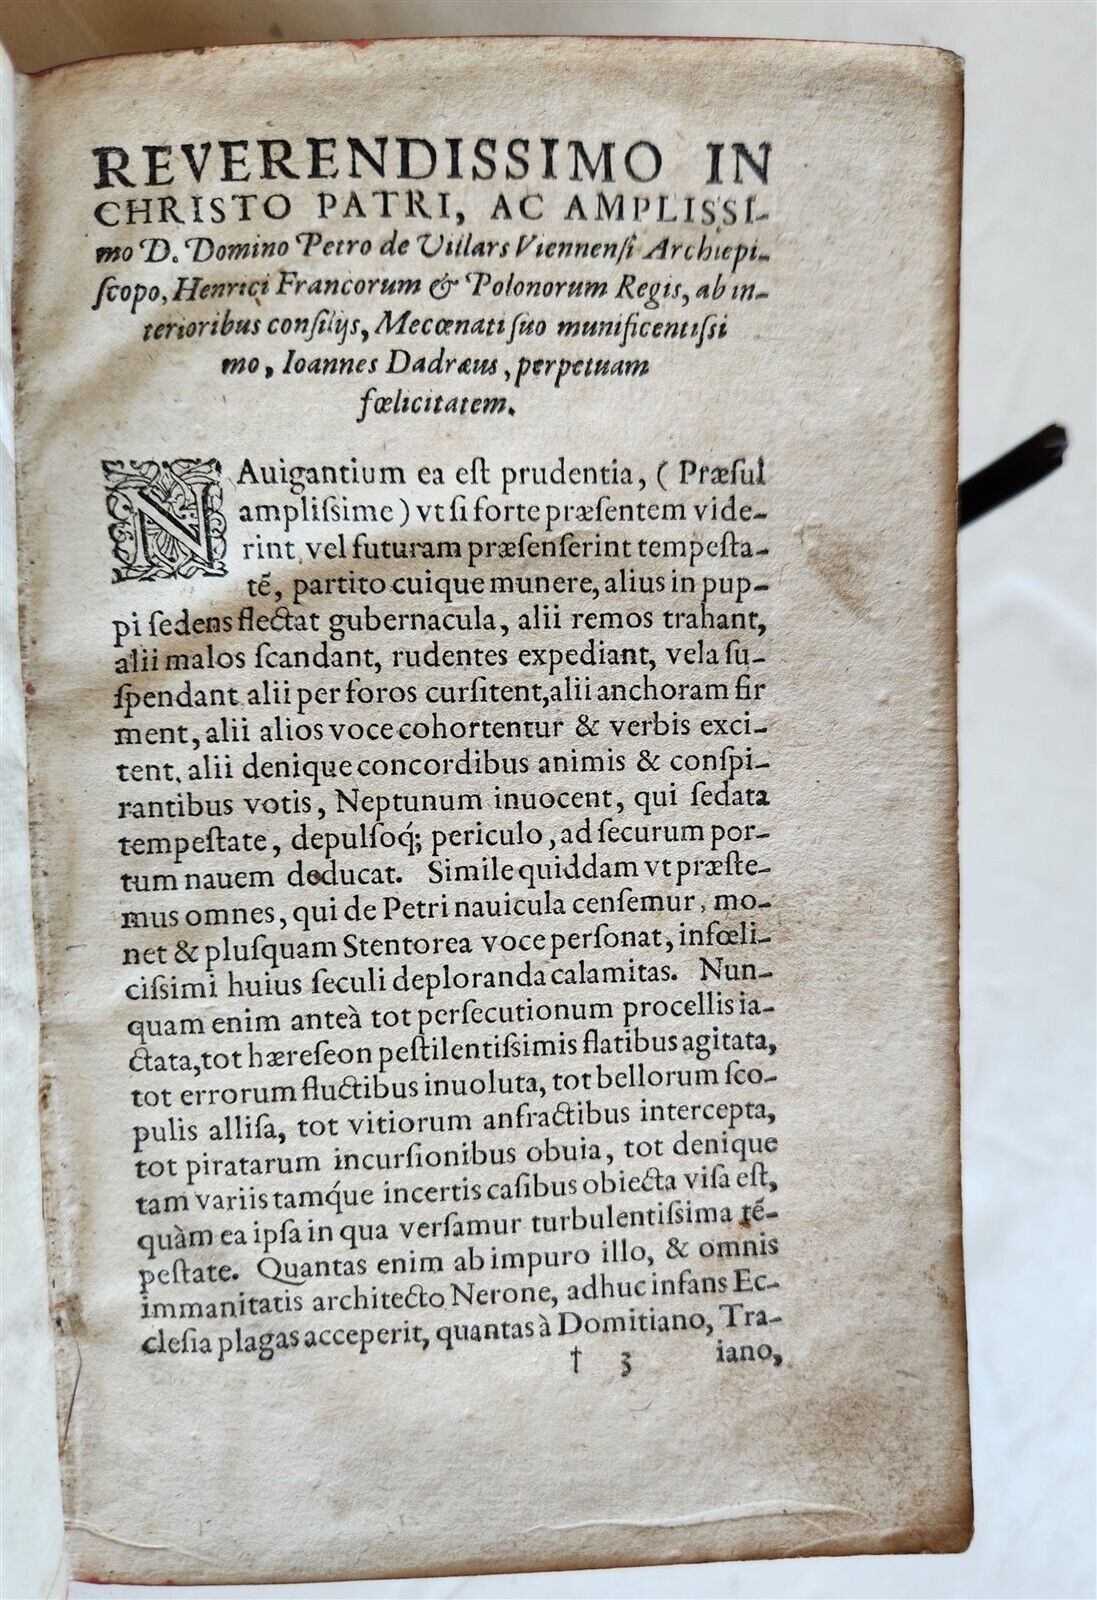 REVERENDISSIMO IN
CHRISTO PATRI, AC AMPLISSI-
mo D. Domino Petro de Villars Viennensi Archiepi-
ſcopo, Henrici Francorum & Polonorum Regis, ab in-
terioribus conſilijs, Mecœnati ſuo munificentiſſi
mo, Ioannes Dadræus, perpetuam
fœlicitatem.
NAuigantium ea eſt prudentia, (Præſul
ampliſsime) vt ſi forte præſentem vide-
rint, vel futuram præſenſerint tempeſta-
tẽ, partito cuique munere, alius in pup-
pi ſedens flectat gubernacula, alii remos trahant,
alii malos ſcandant, rudentes expediant, vela ſu-
ſpendant alii per foros curſitent, alii anchoram fir
ment, alii alios voce cohortentur & verbis exci-
tent, alii denique concordibus animis & conſpi-
rantibus votis, Neptunum inuocent, qui ſedata
tempeſtate, depulſoq́; periculo, ad ſecurum por-
tum nauem deducat. Simile quiddam vt præſte-
mus omnes, qui de Petri nauicula cenſemur, mo-
net & pluſquam Stentorea voce perſonat, infœli-
ciſsimi huius ſeculi deploranda calamitas. Nun-
quam enim anteà tot perſecutionum procellis ia-
ctata, tot hæreſeon peſtilentiſsimis flatibus agitata,
tot errorum fluctibus inuoluta, tot bellorum ſco-
pulis alliſa, tot vitiorum anfractibus intercepta,
tot piratarum incurſionibus obuia, tot denique
tam variis tamq́ue incertis caſibus obiecta viſa eſt,
quàm ea ipſa in qua verſamur turbulentiſsima tẽ-
peſtate. Quantas enim ab impuro illo, & omnis
immanitatis architecto Nerone, adhuc infans Ec-
cleſia plagas acceperit, quantas à Domitiano, Tra-
† 3 iano,